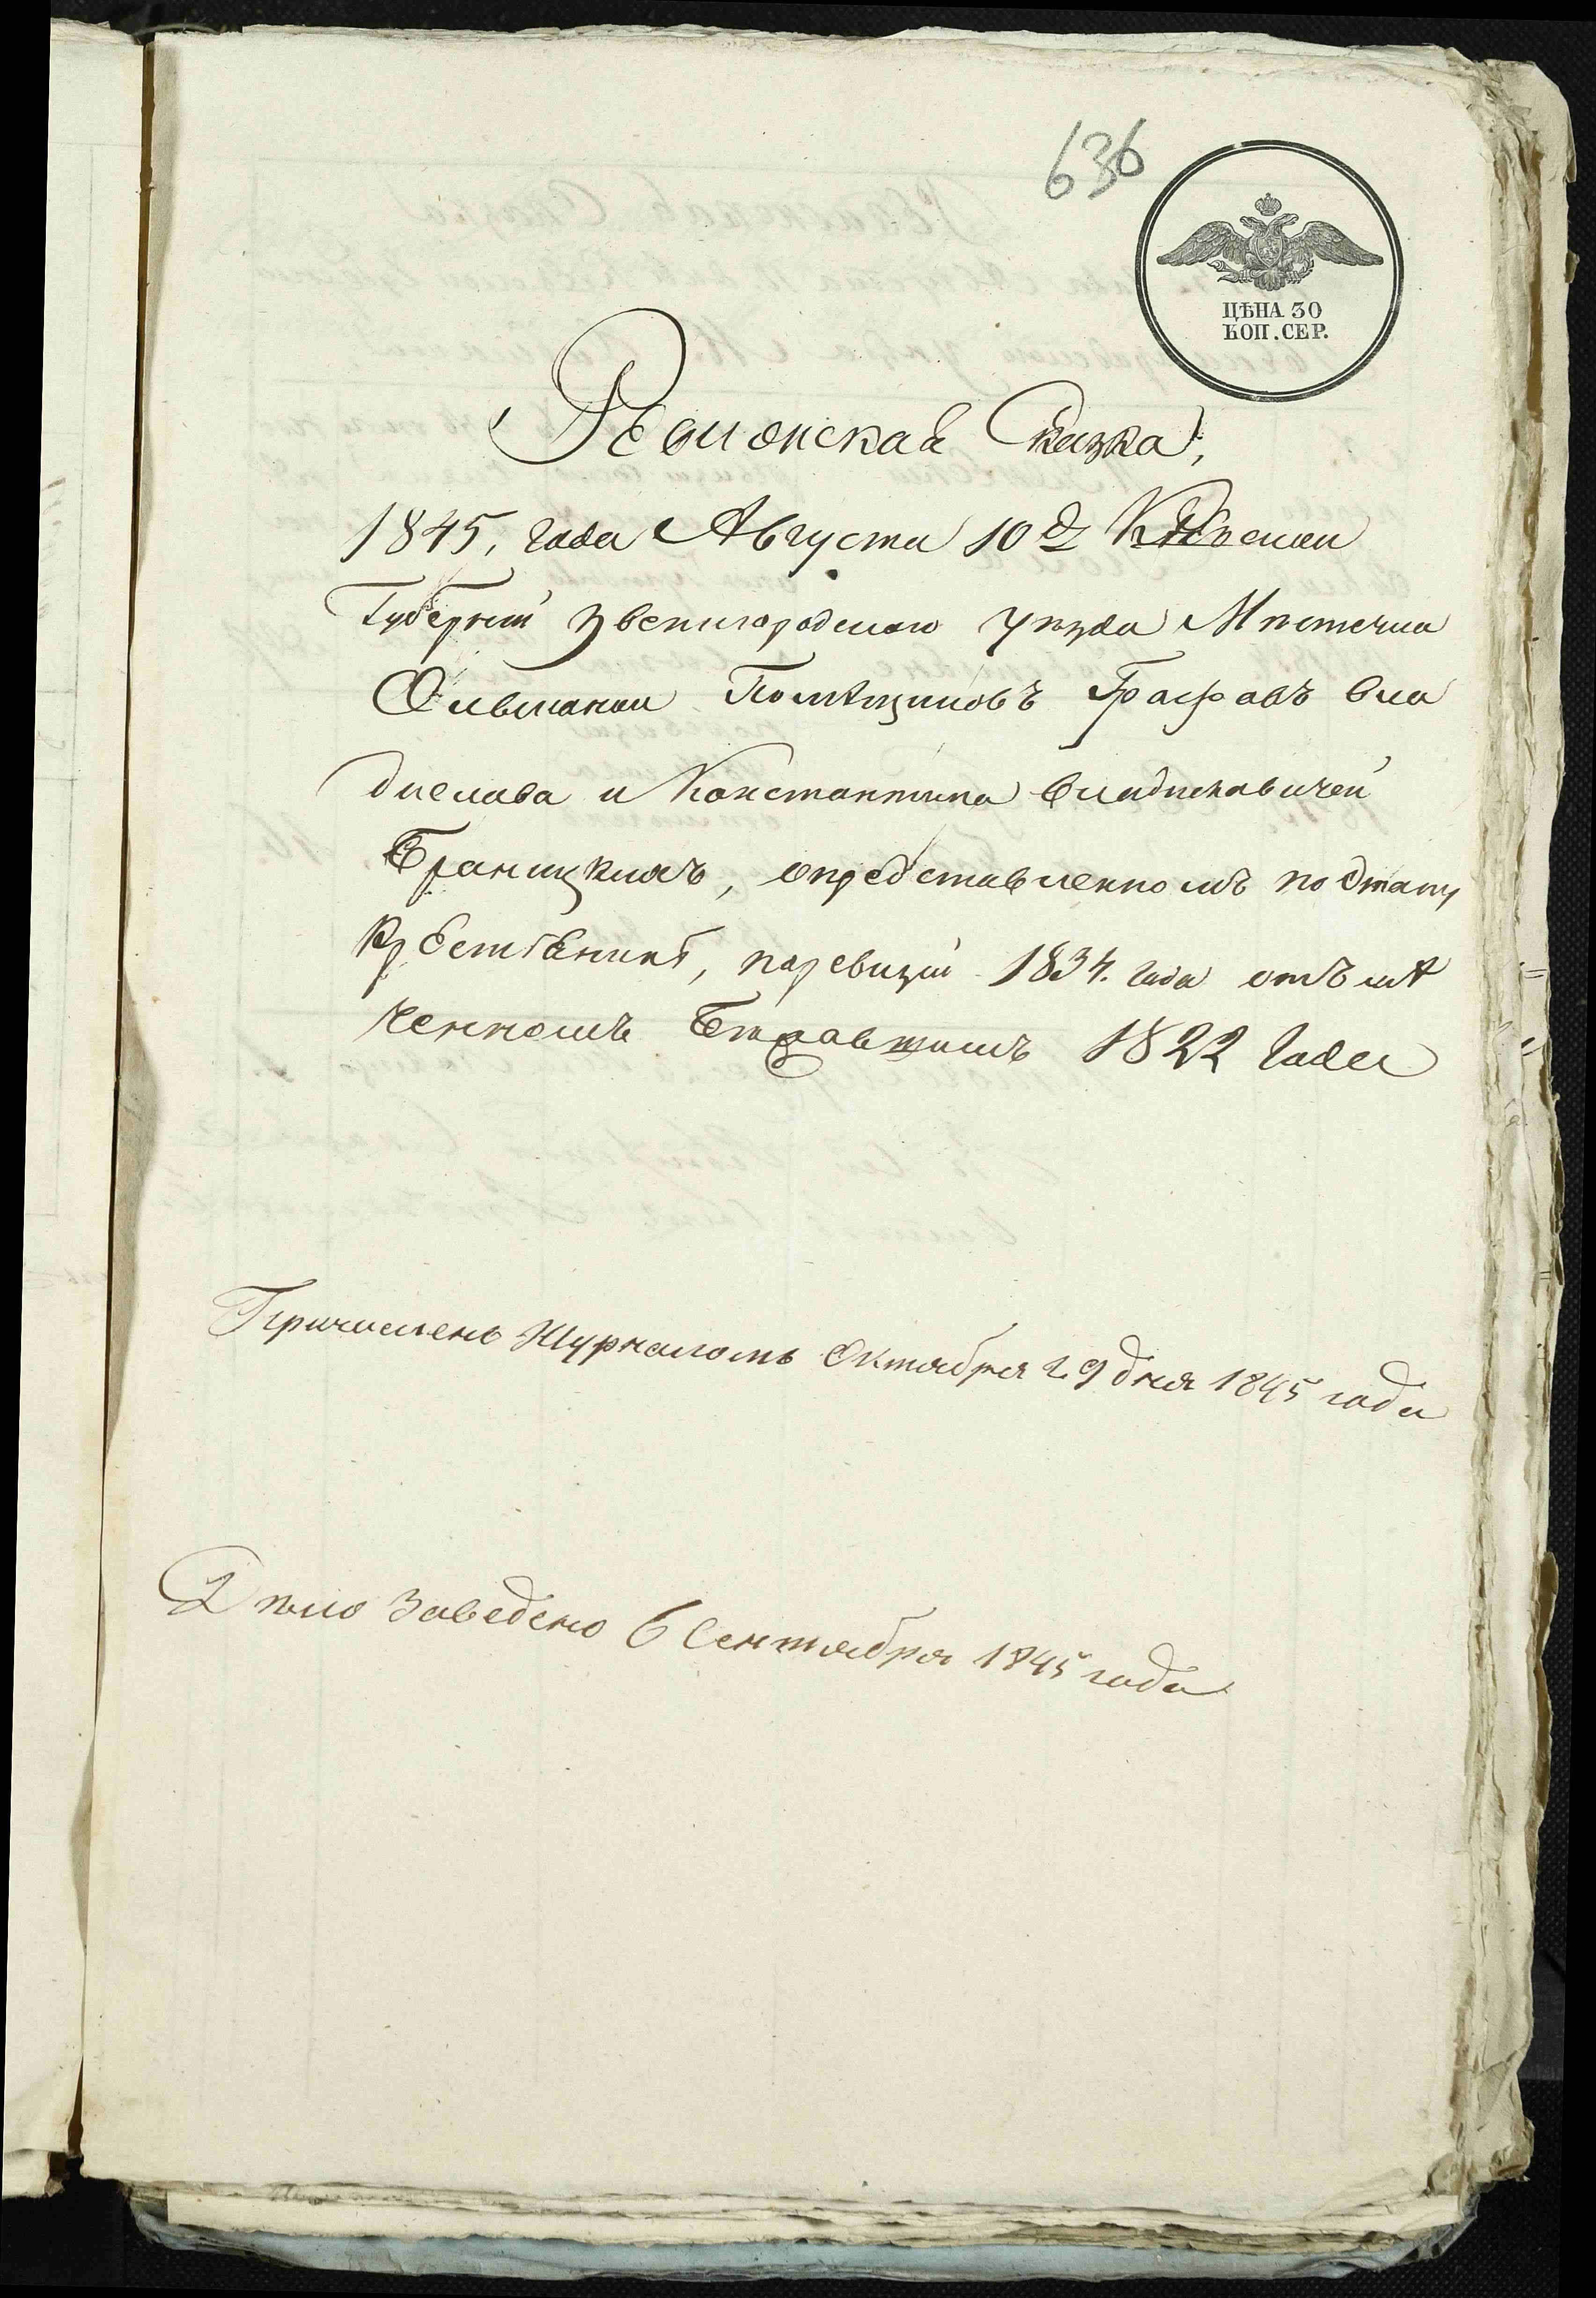 636
ЦѢНА 30
КОП. СЕР.
Ревизская Сказка,
1845, года Августа 10 д Кіевской
Губерніи Звенигородского уѣзда Мѣстечка
Ольшаной Помѣщиковъ Графовъ Вла
дислава и Константина Владиславичей
Браницкихъ, опредставленномъ по Этапу
Крестьянинѣ, поревизіи 1834. года отъмѣ
ченномъ Бѣжавшимъ 1822 Года
Причисленъ Журналомъ Октября 29 дня 1845 года
Дѣло заведено 6 Сентября 1845 года